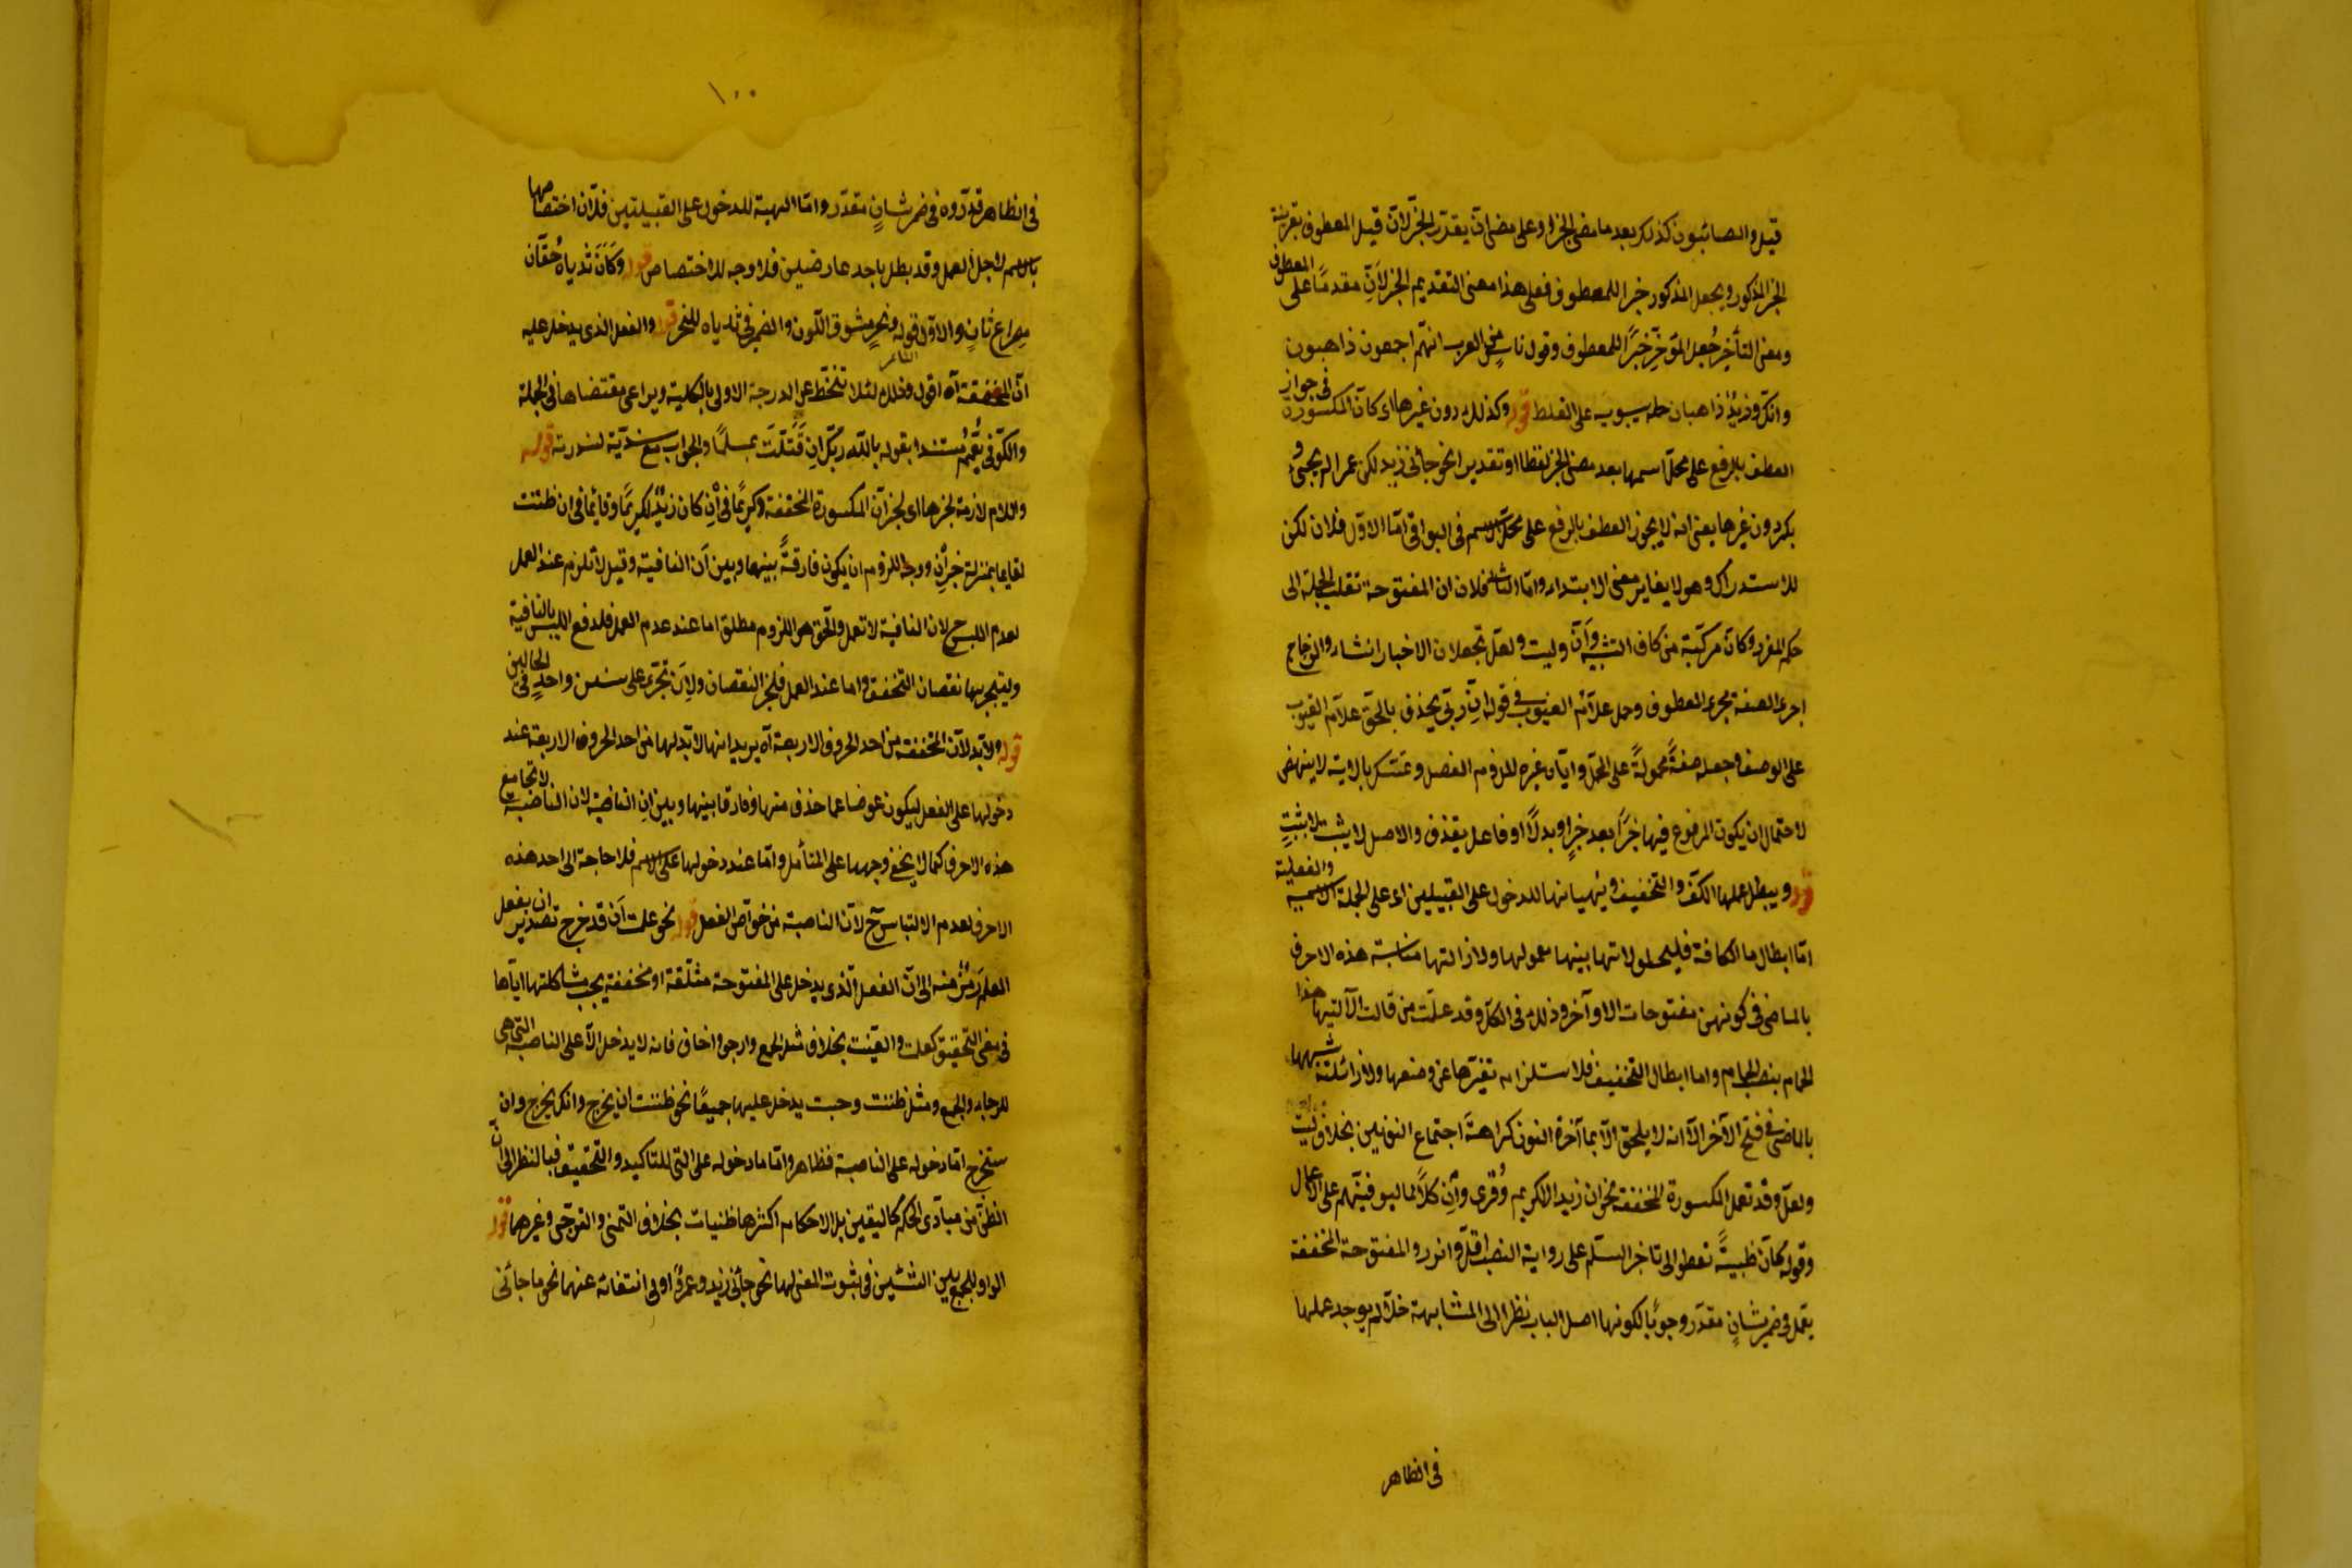 قيل والصائبون كذلك بعد ما مضى الخبر او على مضى ان يقدّر الخبر لانّ قبل المعطوف بقرينة
الخبر المذكور ويجعل المذكور خبرا للمعطوف فعلى هذا معنى التقديم الخبر لانّ مقدمًا على المعطوف
ومعنى التأخير جُعل المؤخّر خبرًا للمعطوف وقول ناس من العرب انهم اجمعون ذاهبون
وانك وزيدٌ ذاهبان حمله سيبويه على الغلط قوله وكذلك دون غيرها اى كان المكسورة فى جواز
العطف بالرفع على محل اسمها بعد مضى الخبر لفظا او تقديرا نحو جائنى زيد لكن عمرا لم يجئ و
بكر دون غيرها يعنى انه لا يجوز العطف بالرفع على محل الاسم فى البواقى امّا الاوّل فلان لكن
للاستدراك وهو لا يغاير معنى الابتداء وامّا الثانى فلان ان المفتوحة تقلب الجملة الى
حكم المفرد وكانّ مركّبة من كاف التشبيه وانّ وليت ولعلّ تجعلان الاخبار انشاء والزجاج
اجرى الصفة مجرى المعطوف وحمل علّام الغيوب فى قوله انّ ربّى يقذف بالحقّ علّام الغيوب
على الوصف وجعله صفةً محمولةً على المحلّ واباه غيره للزوم الفصل وتمسّكه بالاية لا ينهض
لاحتمال ان يكون المرفوع فيها خبرًا بعد خبرٍ او بدلًا او فاعل يقذف والاصل لا يثبت بلا ثبت
قوله ويبطل عملها الكفّ والتخفيف ويُهيّانها للدخول على القبيلين اى على الجملة الاسمية والفعلية
امّا ابطال ما الكافة فليحلولاتها بينها معمولها ولازالتها مناسبة هذه الاحرف
بالماضى فى كونهنّ مفتوحات الاواخر وذلك فى الكلّ وقد عملت من قالت الا ليتما هذا
الحمام بنصب الحمام واما ابطال التخفيف فلاستلزامه تغيّرها عن وضعها ولازالته شبهها
بالماضى فى فتح الآخر الا انه لا يلحق الا بما آخره النون كراهةَ اجتماع النونين بخلاف ليت
ولعلّ وقد تعمل المكسورة المخففة نحو ان زيدا لكريم وقرئ وان كلًّا لما ليوفينّهم على الاعمال
وقوله كأن ظبيةً تعطو الى ناضر السلم على رواية النصب اقلّ واندر والمفتوحة المخففة
يعمل فى ضمير شانٍ مقدّر وجوبًا لكونها اصل الباب نظرا الى المشابهة خلا لم يوجد عملها
فى الظاهر
١٠٠
فى الظاهر قدّروه فى ضمير شانٍ مقدّر وامّا التهيئة للدخول على القبيلتين فلانّ اختصاصها
بالاسم لاجل العمل وقد بطل باحد عارضين فلا وجه للاختصاص قوله وَكَأَنْ ثَدْيَاهُ حُقَّان
مصراع ثانٍ والاوّل قوله ونحرٍ مشرق اللّون والضمير فى ثدياه للنحر قوله والفعل الذى يدخل عليه
ان المخففة اه اقول وذلك لئلا تنحّط عن الدرجة الاولى بالكلية ويراعى مقتضاها فى الجملة
والكوفى يُعمّم مستندا بقوله بالله ربّك ان قتلت لمسلمًا والجواب منع سنديّة لندرته قوله
واللام لازمة لخبرها اى لخبر ان المكسورة المخففة وكريمًا فى ان كان زيدٌ لكريمًا وقائما فى ان ظننت
لقايما بمنزلة خبر ان ووجه اللزوم ان يكون فارقةً بينها وبين ان النافية وقيل لا تلزم عند العمل
لعدم اللبس ح لان النافية لا تعمل والحق هو اللزوم مطلقا اما عند عدم العمل فلدفع اللبس بالنافية
وليتجبر بها نقصان التخفف واما عند العمل فلجبر النقصان ولان تجرى على سنن واحدٍ فى الحالين
قوله ولا بدّ لان المخففة من احد الحروف الاربعة اه يريد انها لا بدّ لها من احد الحروف الاربعة عند
دخولها على الفعل ليكون عوضا عما حذف منها وفارقا بينها وبين ان الناصبة لان الناصبة لا تجامع
هذه الاحرف كما لا يخفى وجهها على المتأمل وامّا عند دخولها على الاسم فلا حاجة الى احد هذه
الاحرف لعدم الالتباس ح لانّ الناصبة من خواصّ الفعل قوله نحو علمت ان قد خرج تصدير ان بفعل
العلم رمز منه الى انّ الفعل الّذى يدخل على المفتوحة مثقّلة او مخففة يجب مشاكلتها ايّاها
فى معنى التحقيق كعلمت وتيقنت بخلاف مثل اطمع وارجو واخاف فانه لا يدخل الا على الناصبة التى هى
للرجاء والطمع ومثل ظننت وحسبت يدخل عليها جميعًا نحو ظننت ان يخرج وانك تخرج وان
ستخرج امّا دخوله على الناصبة فظاهر وامّا ما دخوله على التى للتاكيد والتحقيق فبالنظر الى انّ
الظن من مبادى الحكم كاليقين بل الاحكام اكثرها ظنيات بخلاف التمنى والترجّى وغيرهما قوله
الواو للجمع بين الشيئين فى ثبوت المعنى لهما نحو جائنى زيد وعمرو او فى انتفائه عنهما نحو ما جائنى